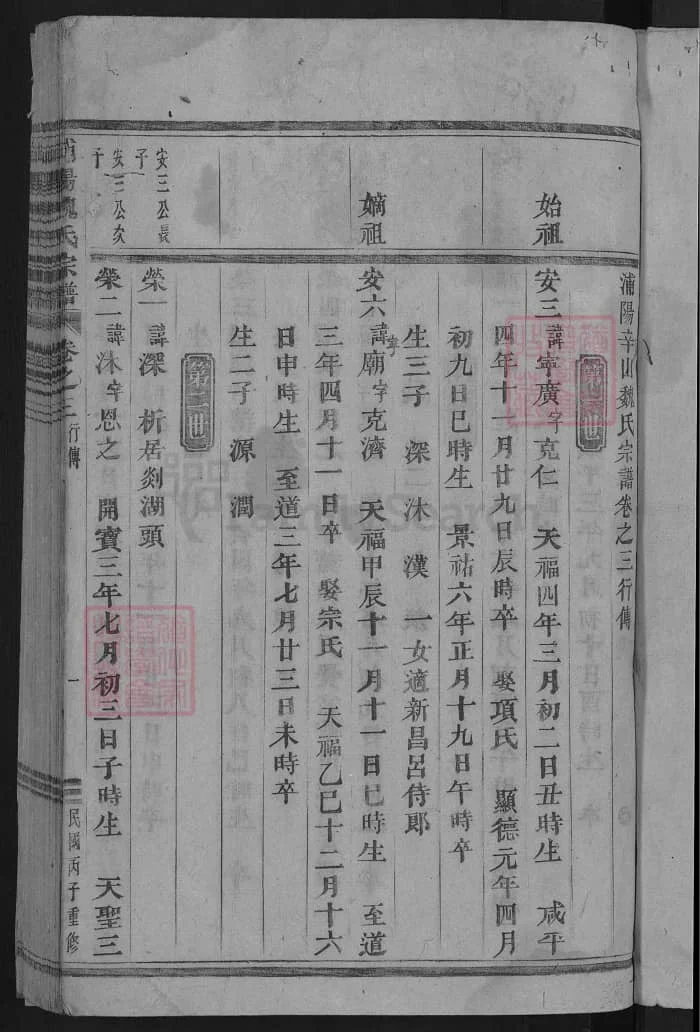 浦陽辛山魏氏宗譜卷之三行傳
第一世
始祖
安三諱寧廣字克仁 天福四年三月初二日丑時生 咸平
四年十一月廿九日辰時卒 娶項氏 顯德元年四月
初九日巳時生 景祐六年正月十九日午時卒
生三子 深 沐 漢 一女適新昌呂侍郎
嫡祖
安六諱廟字克濟 天福甲辰十一月十一日巳時生 至道
三年四月十一日卒 娶宗氏 天福乙巳十二月十六
日申時生 至道三年七月廿三日未時卒
生二子 源 潤
第二世
安三公長子
榮一諱深 析居剡湖頭
安三公次子
榮二諱沐字恩之 開寶三年七月初三日子時生 天聖三
浦陽魏氏宗譜 卷之三 行傳 一 民國丙子重修